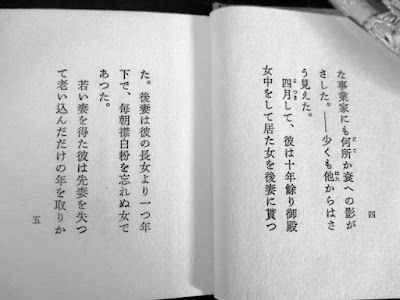 四
な事業家にも何所か衰への影が
さした。――少くも他からはさ
う見えた。
四月して、彼は十年餘り御殿
女中をして居た女を後妻に貰つ
た。後妻は彼の長女より一つ年
下で、毎朝襟白粉を忘れぬ女で
あつた。
若い妻を得た彼は先妻を失つ
て老い込んだだけの年を取りか
五